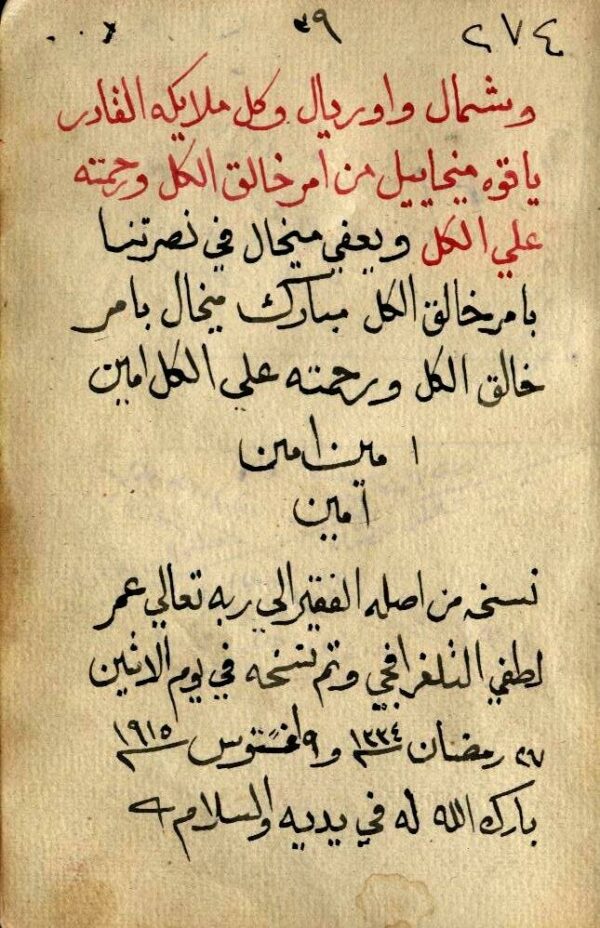 ٢٧٤ ٣٩
وشمال واوريال وكل ملايكه القادر
ياقوه ميخاييل من امر خالق الكل ورحمته
علي الكل ويعفي ميخال في نصرتنا
بامر خالق الكل مبارك ميخال بامر
خالق الكل ورحمته علي الكل امين
امين امين
امين
نسخه من اصله الفقير الي ربه تعالي عمر
لطفي التلغرافجي وتم نسخه في يوم الاثنين
٢٧ رمضان ١٣٣٤ و٩ اغستوس ١٩١٥
بارك الله له في يديه والسلام